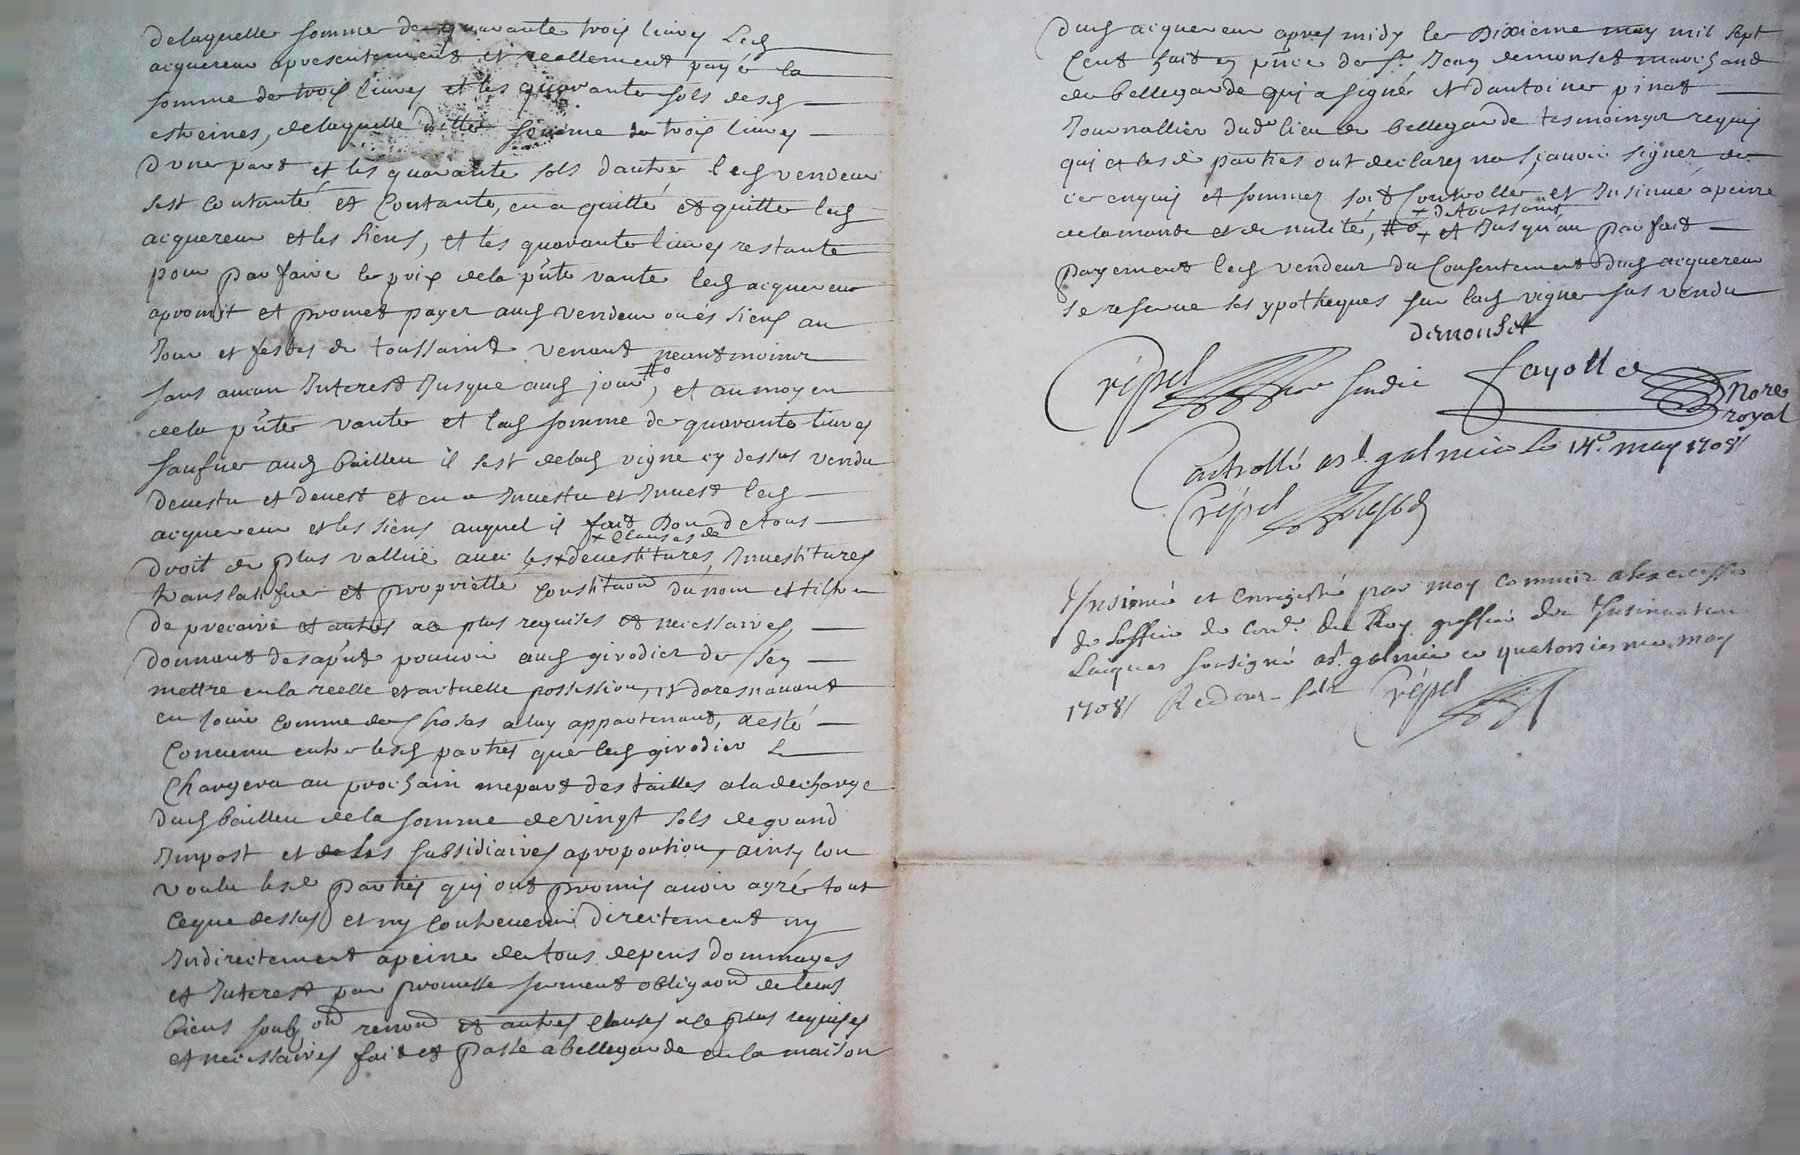 delaquelle somme de quarante trois livres led
acquereur apresentement et reallement payé la
somme de trois livres et les quarante sols desd
estreines, delaquelle ditte somme de trois livres
dune part et les quarante sols dautre led vendeur
sest contanté et contante, en a quitté et quitte led
acquereur et les siens, et les quarante livres restante
pour parfaire le prix dela pnte vante led acquereur
a promit et promet payer aud vendeur ou es siens au
Jour et festes de toussaint venant neantmoins
sans aucun Interest Jusque aud jour, et au moyen
dela pnte vante et lad somme de quarante livres
saufuee aud bailleur il sest delad vigne cy dessus vendu
devestu et devest et en a Investu et Invest led
acquereur et les siens auquel il fait Don de tous
+ clauses de
droit de plus vallue avec les + devestitures, Investitures
translatifue et proprietté constitution du nom et tiltre
de precaire et autres ace plus requises et necessaires,
donnant desapnt pouvoir aud girodier de sen
mettre en la reelle et actuelle possession, et doresnavant
en Jouir comme de choses a luy appartenant, a esté
Convenu entre lesd parties que led girodier se
Chargera au prochain mepart des tailles a la decharge
dud bailleur dela somme de vingt sols de grand
Impost et deles subsidiaires aproportion, ainsy lon
voulu lesd parties quy ont promis avoir agreé tout
ceque dessus et ny contrevenir directement ny
Indirectement apeine de tous depens dommages
et Interest par promesse serment obligaon de leurs
biens soubz on renon et autres clauses ace plus requises
et necessaires fait et passé a bellegarde en la maison
dud acquereur apres midy le Dixieme may mil sept
Cent huit en pnce de Sr Jean demonset marchand
de bellegarde quy a signé et dantoine pinat
Journallier dud lieu de bellegarde tesmoings requis
quy et lesd parties ont declarez ne scavoir signer de
ce enquis et sommez soit controllée et Insinué apeine
+ de toussaint
delamande et de nulité, + et Jusqu'au parfait
payement led vendeur du Consentement dud acquereur
se reserve ses ypotheques sur lad vigne sus vendu
demonset
Crépel sindic fayolle nore
royal
Controllé a st. galmier le 14e. may 1708
Crépel
Insinué et enregistré par moy commis alexercisse
de loffice de Conr. du Roy greffier des Insinuations
Laiques soussigné a st. galmier ce quatorsieme may
1708 Crépel